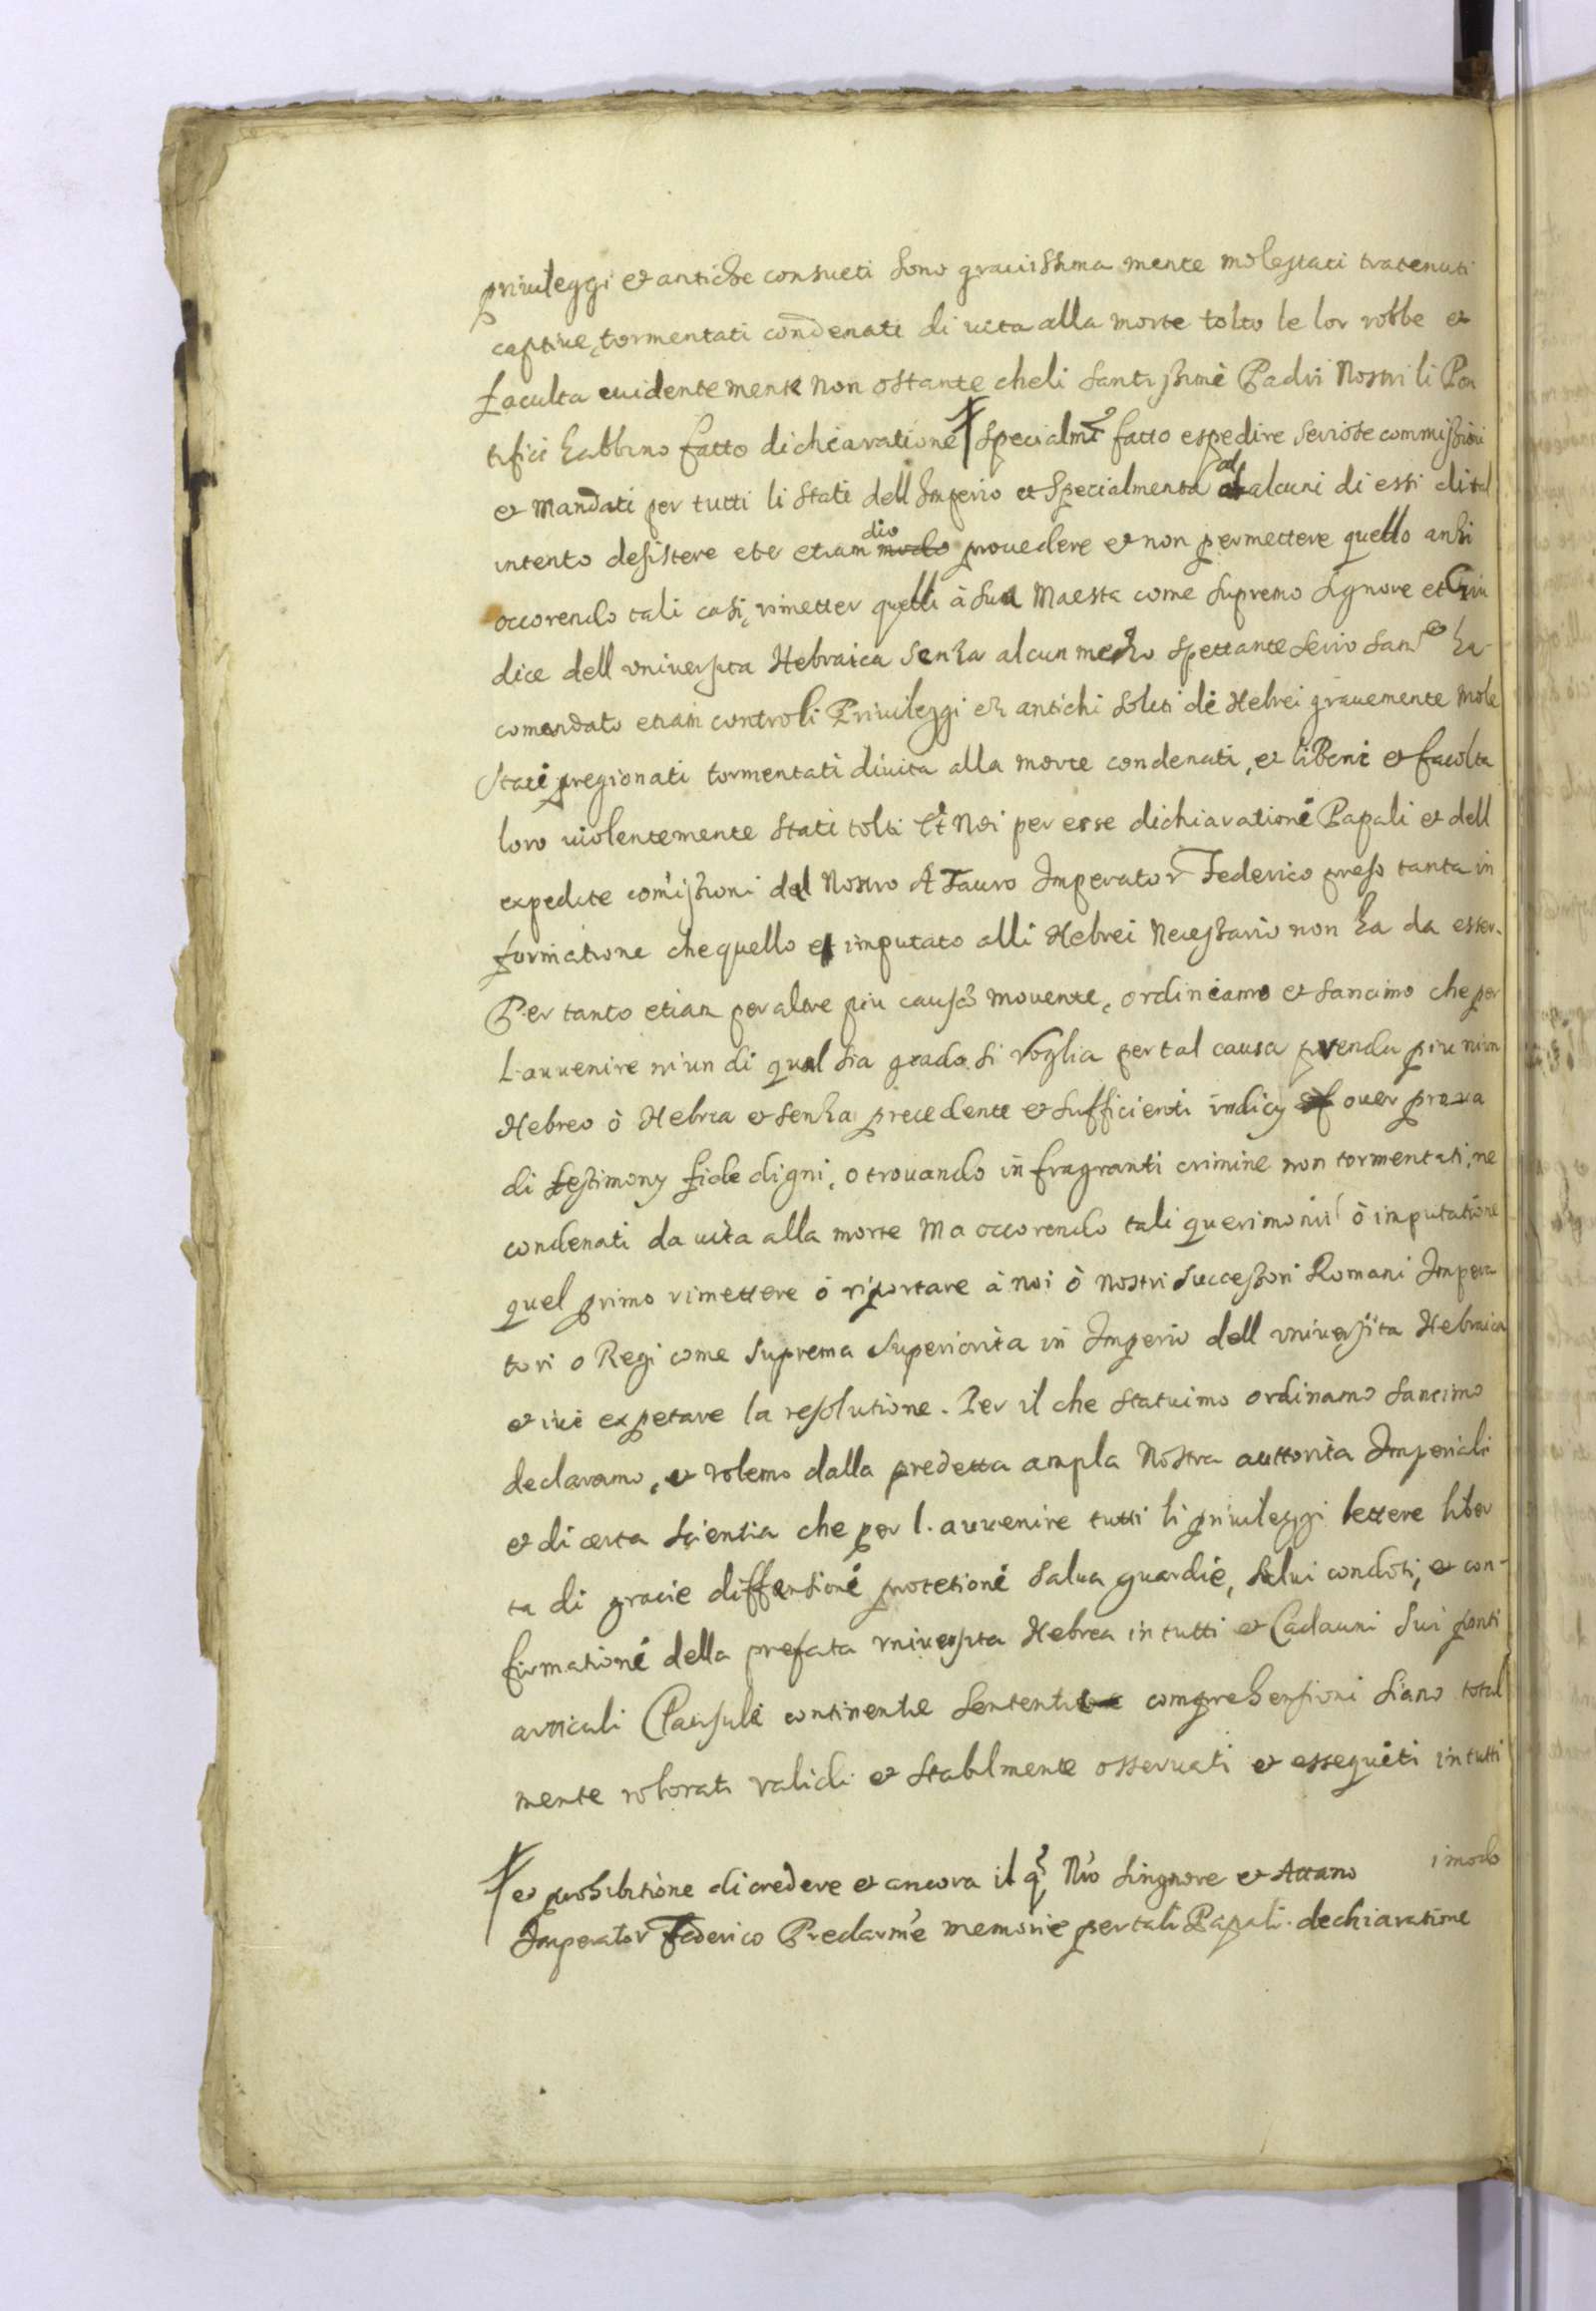 priuileggi et antiche consueti sono grauissima mente molestati tratenuti
captiue, tormentati condenati di uita alla morte tolto le lor robbe et
faculta euidentemente non ostante cheli santissimi Padri Nostri li Pon
tifici habbino fatto dichiaratione specialmte fatto espedire seriose commissioni
et mandati per tutti li stati dell Imperio et specialmente ad alcuni di essi di tal
intento desistere et etiam dio mocho prouedere et non permettere quello anzi
occorendo tali casi, rimetter quelli à sua Maesta come supremo signore et Giu
dice dell uniuersita Hebraica senza alcun mezo spettante ha
comandato etiam controli Priuileggi et antichi soliti de Hebrei grauemente mole
stati pregionati tormentati diuita alla morte condenati, et li Beni et facolta
loro uiolentemente stati tolti et Noi per esse dichiarationi Papali et dell
expedite comissioni del Nostro A Tauro Imperator Federico preso tanta in
formatione che quello imputato alli Hebrei Necessario non ha da esser.
Per tanto etiam per altre piu causé mouente, ordineamo et sancimo che per
L'auuenire niun di qual sia grado si voglia per tal causa prenda piu niun
Hebreo ò Hebrea et senza precedente et sufficienti indicy ouer proua
di testimony fide digni, o trouando in fragranti crimine non tormentati, ne
condenati da uita alla morte Ma occorendo tali querimonie ò imputatione
quel primo rimettere ò riportare à noi ò nostri successori Romani Impera
tori o Regi come suprema superiorita in Imperio dell uniuersita Hebraica
et iui expetare la resolutione. Per il che statuimo ordinamo sancimo
declaramo, et volemo dalla predetta ampla Nostra auttorita Imperiali
et di certa scientia che per l. auuenire tutti li priuileggi lettere liber
ta di gracie diffensioni protetioni salua guardie, salui condoti, et con-
firmationi della prefata vniuersita Hebrea in tutti et Cadauni sui ponti
articuli Clausule continentie sententie comprehensioni siano total
mente roborati validi et stabilmente osseruati et essequiti in tutti
i modo
et prohibitione di credere et ancora il q. Nro singnore et Attauo
Imperator Federico Preclarme memorie per tali Papali dechiaratione